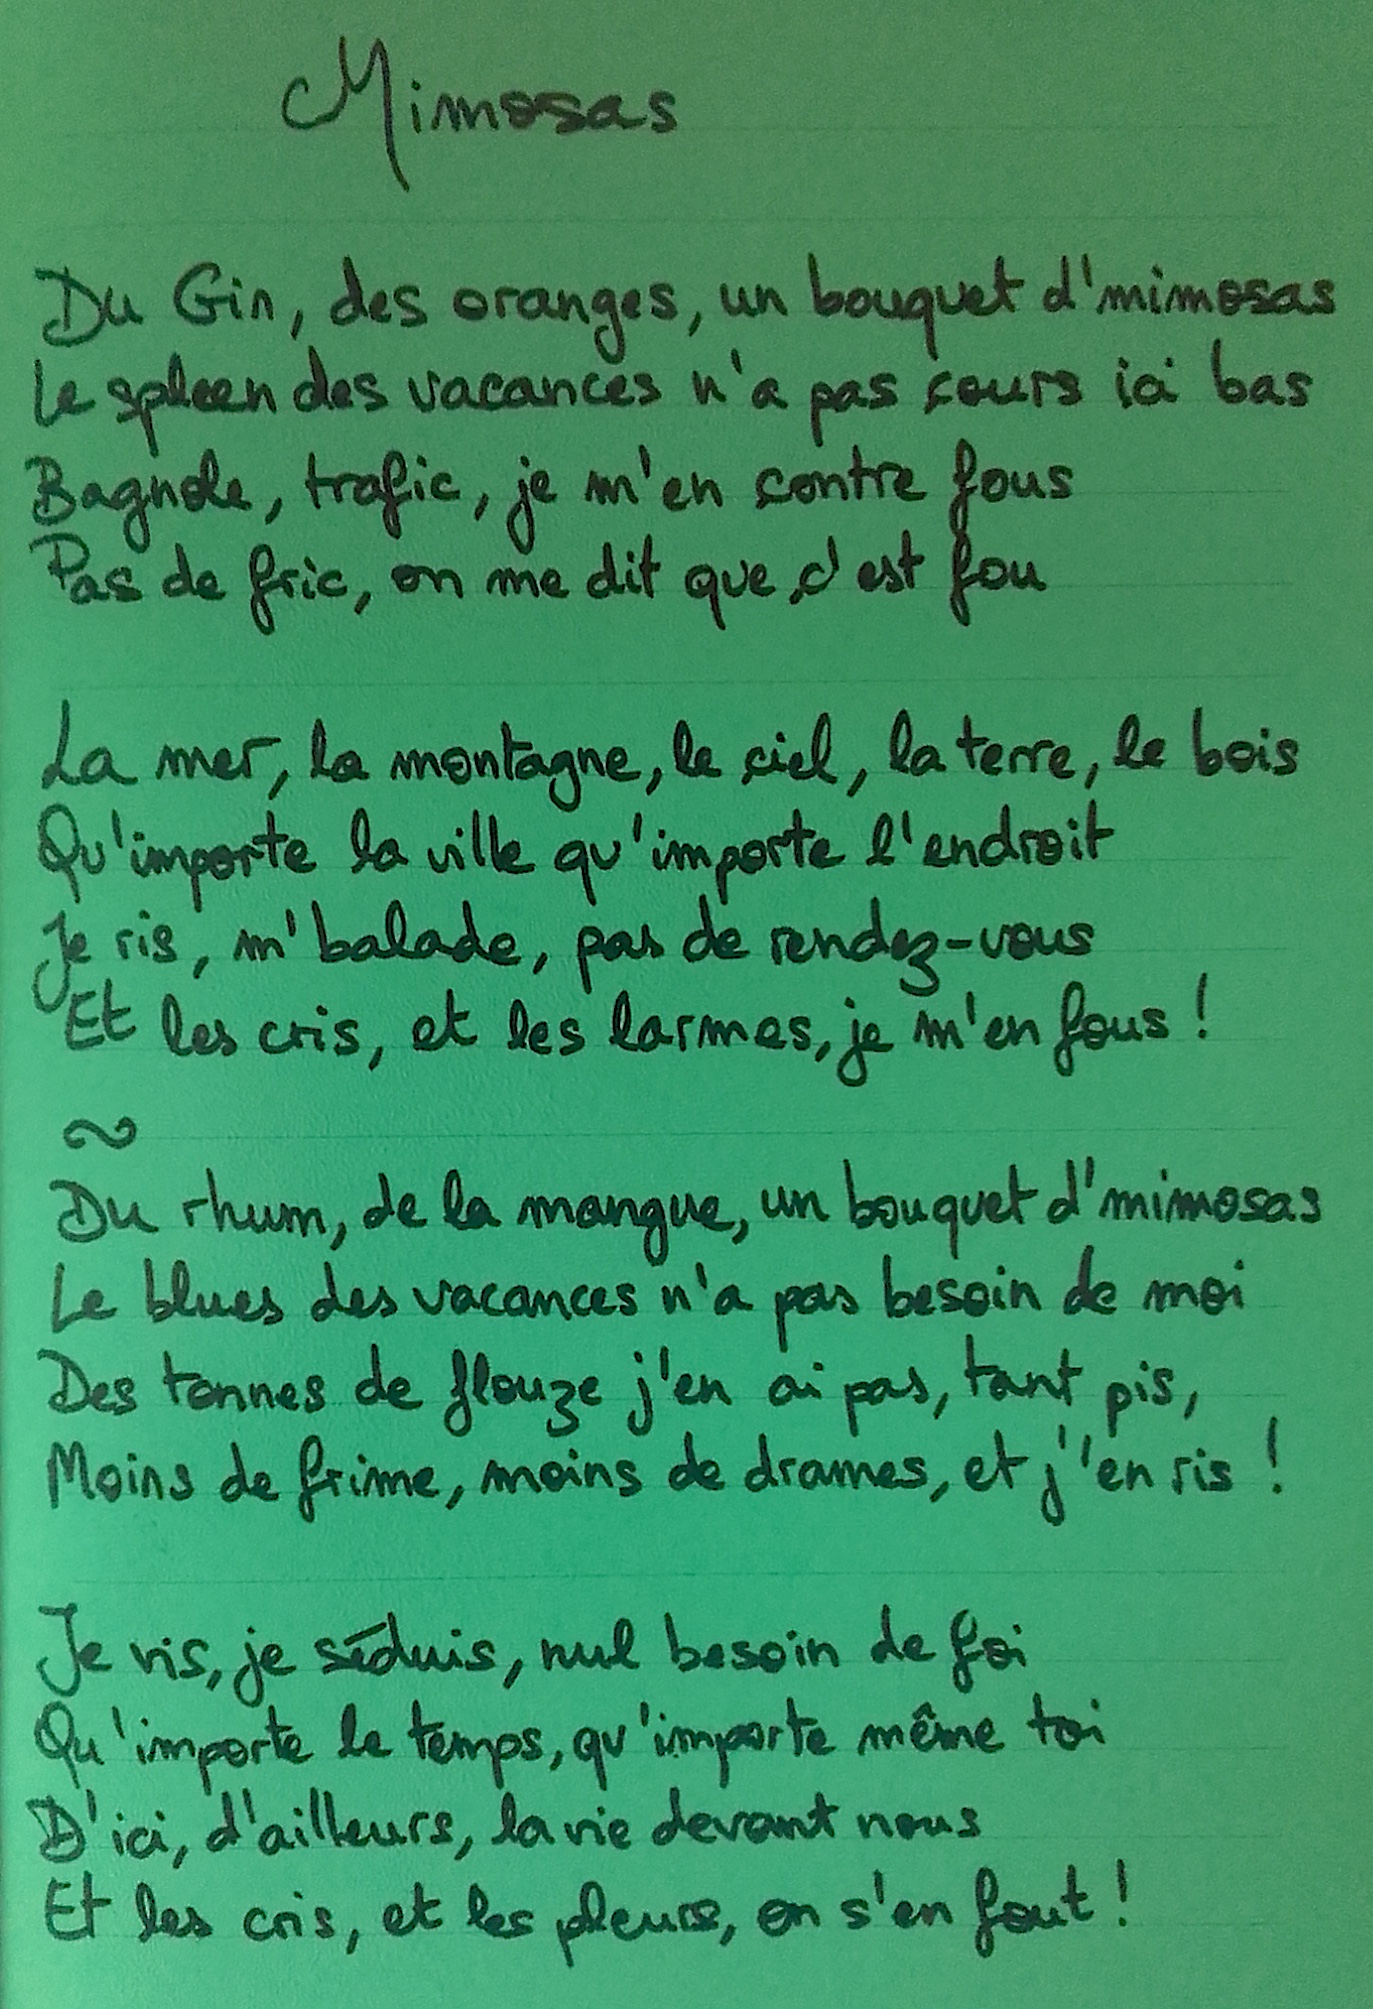 Mimosas
Du Gin, des oranges, un bouquet d'mimosas
Le spleen des vacances n'a pas cours ici bas
Bagnole, trafic, je m'en contre fous
Pas de fric, on me dit que c'est fou
La mer, la montagne, le ciel, la terre, le bois
Qu'importe la ville qu'importe l'endroit
Je ris, m'balade, pas de rendez-vous
Et les cris, et les larmes, je m'en fous !
~
Du rhum, de la mangue, un bouquet d'mimosas
Le blues des vacances n'a pas besoin de moi
Des tonnes de flouze j'en ai pas, tant pis,
Moins de frime, moins de drames, et j'en ris !
Je vis, je séduis, nul besoin de foi
Qu'importe le temps, qu'importe même toi
D'ici, d'ailleurs, la vie devant nous
Et les cris, et les pleurs, on s'en fout !